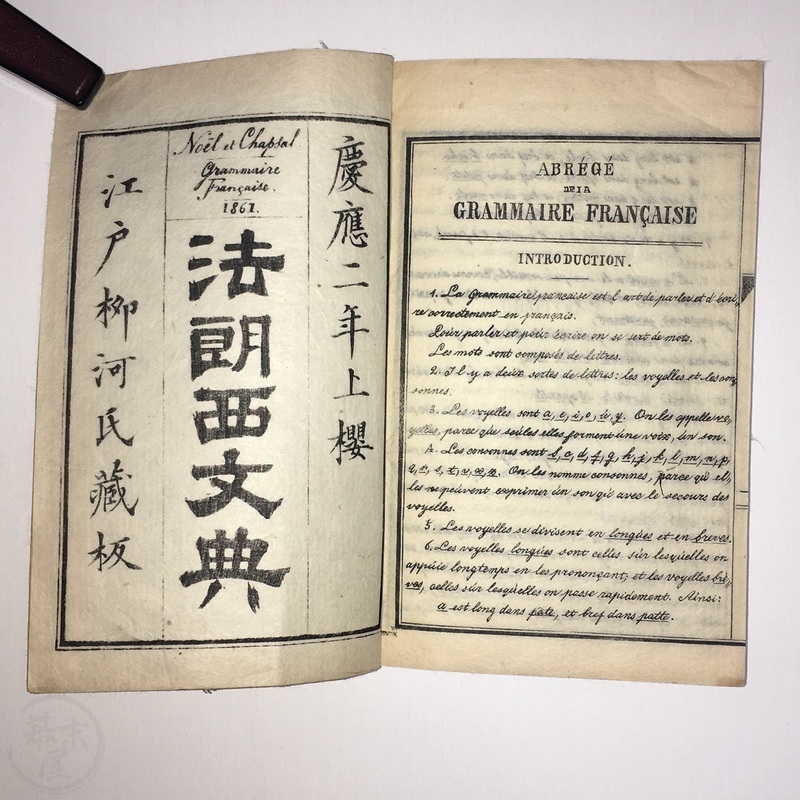 慶應二年上櫻
Noël et Chapsal
Grammaire
Française.
1861.
法朗西文典
江戸柳河氏藏板
ABRÉGÉ
DE LA
GRAMMAIRE FRANÇAISE
INTRODUCTION.
1. La Grammaire française est l'art de parler et d'écri-
re correctement en français.
Pour parler et pour écrire on se sert de mots.
Les mots sont composés de lettres.
2. Il y a deux sortes de lettres: les voyelles et les con-
sonnes.
3. Les voyelles sont a, e, i, o, u, y. On les appelle vo-
yelles, parce que seules elles forment une voix, un son.
4. Les consonnes sont b, c, d, f, g, h, j, k, l, m, n, p,
q, r, s, t, v, x, z. On les nomme consonnes, parce qu'el-
les ne peuvent exprimer un son qu'avec le secours des
voyelles.
5. Les voyelles se divisent en longues et en breves.
6. Les voyelles longues sont celles sur lesquelles on
appuie longtemps en les prononçant; et les voyelles brè-
ves, celles sur lesquelles on passe rapidement. Ainsi:
a est long dans pate, et bref dans patte.
幕末屋